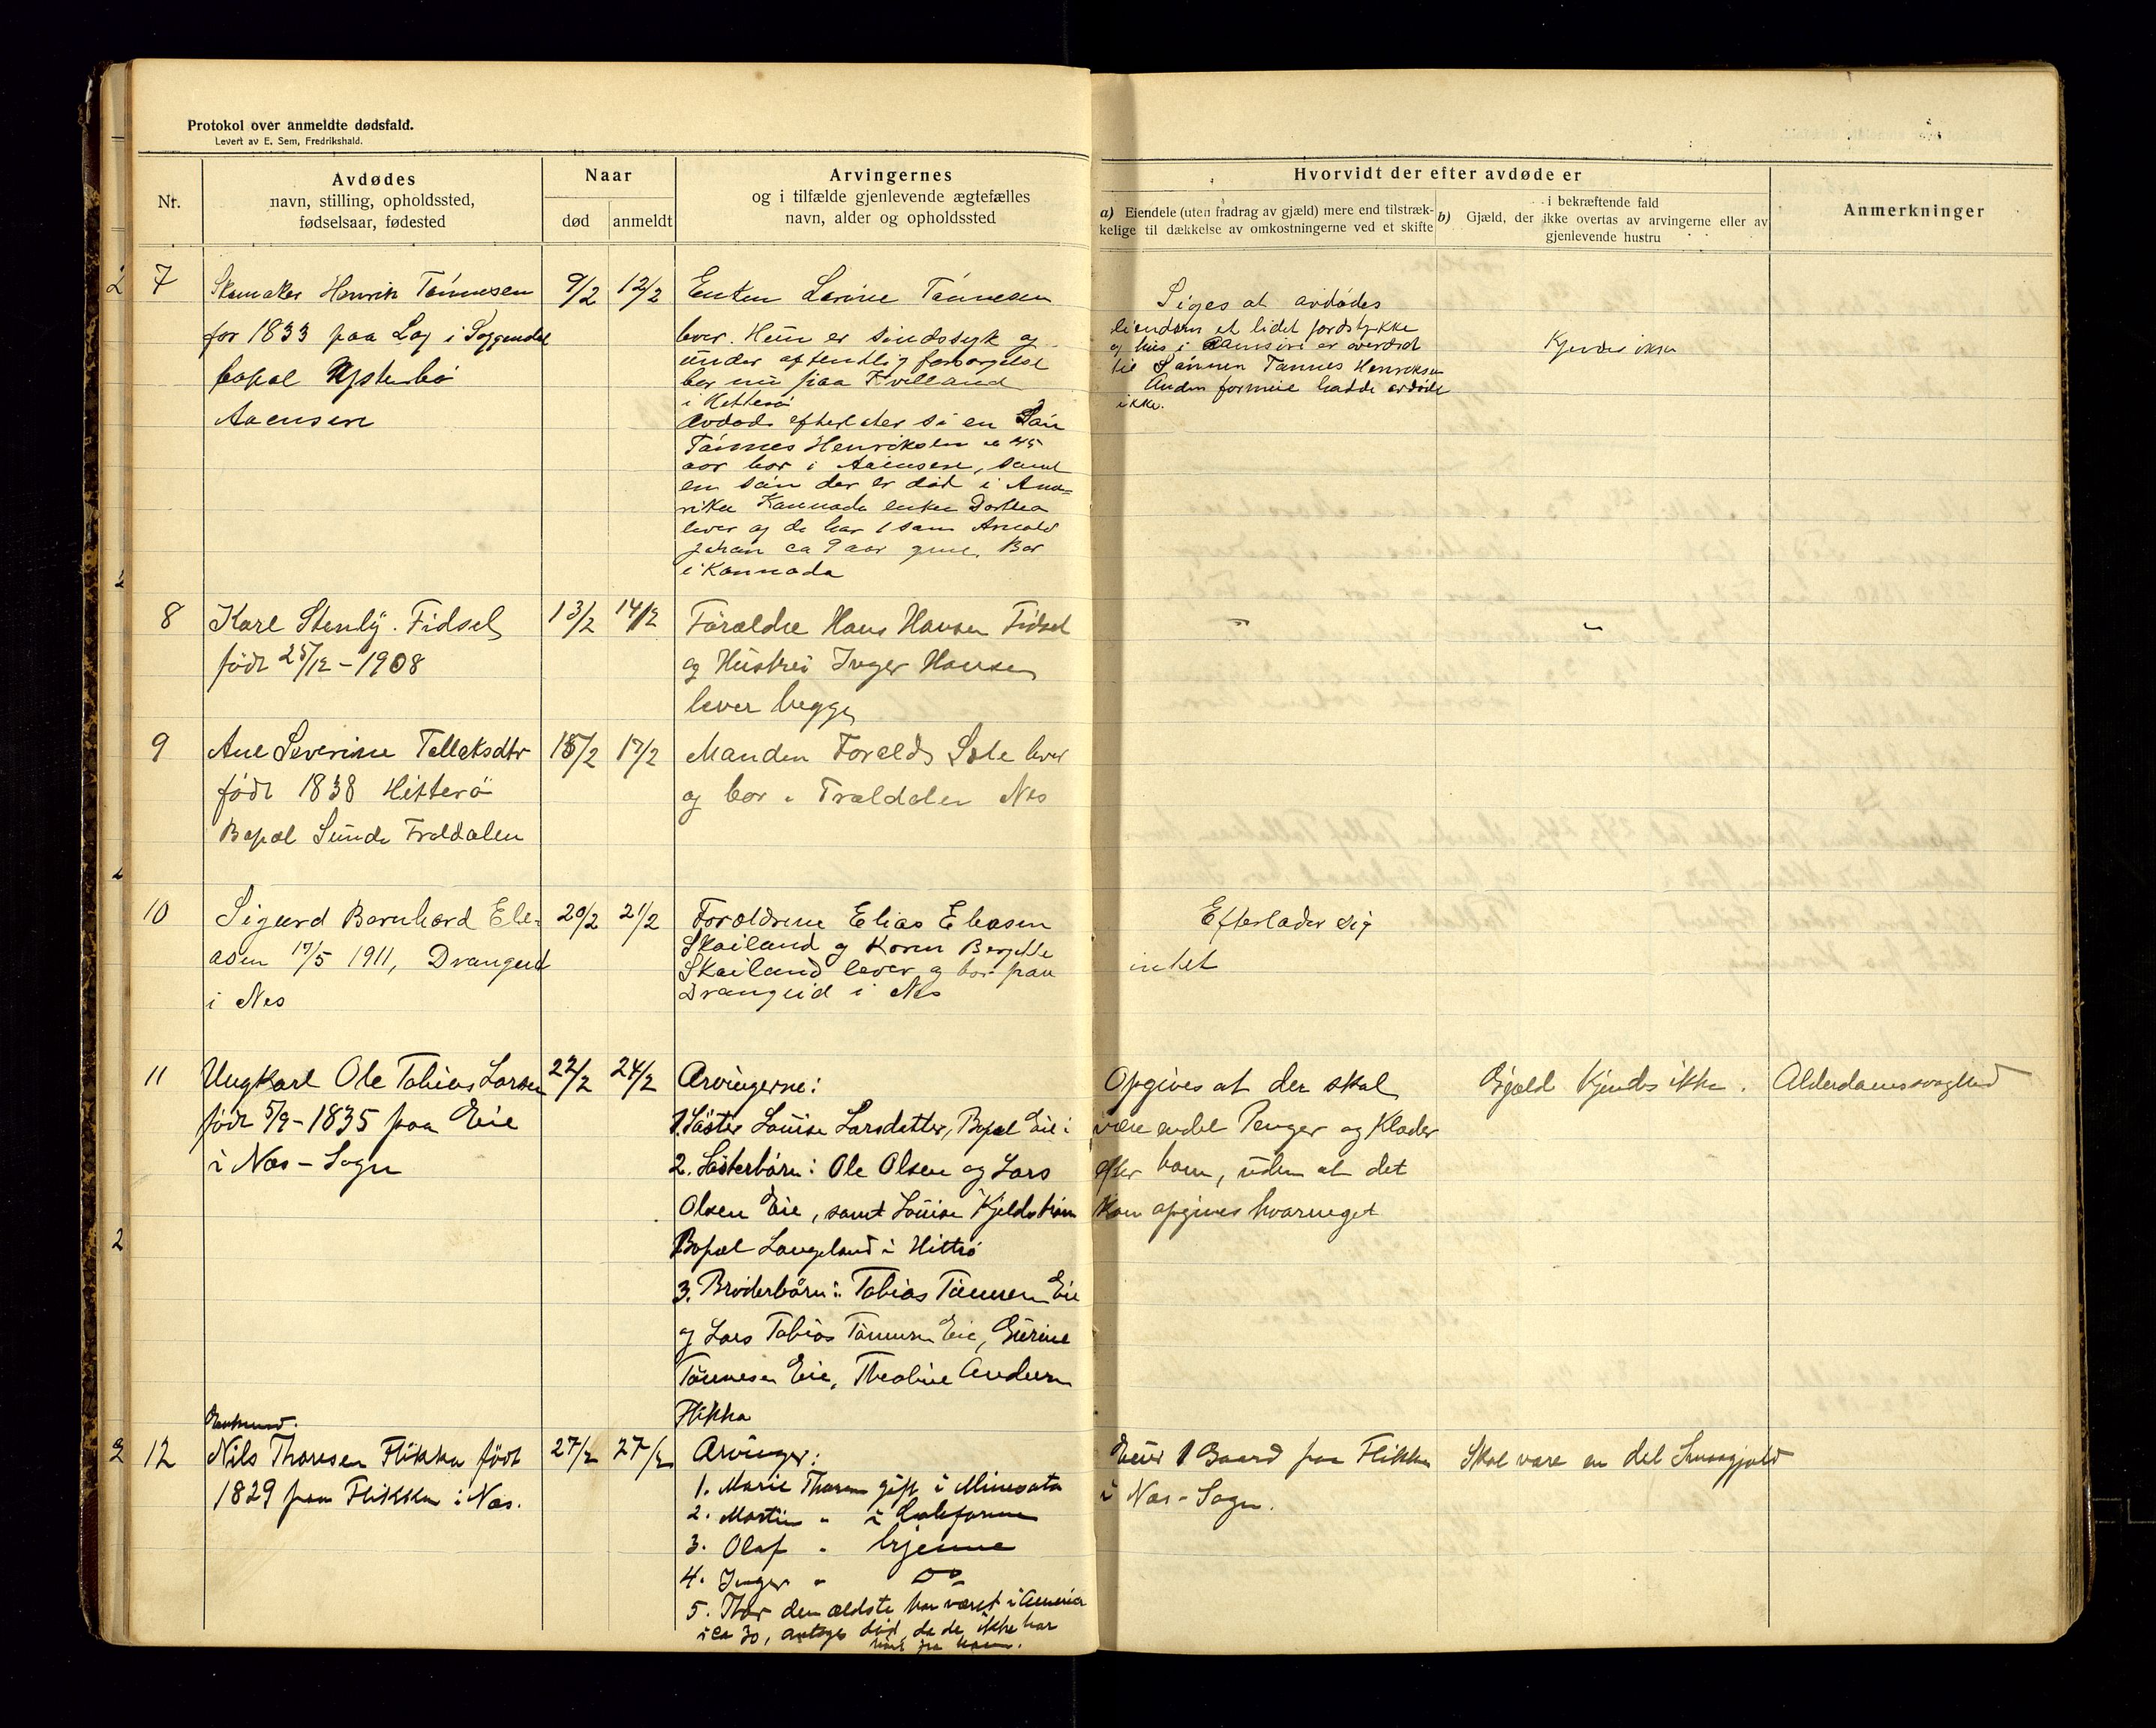 Protokol over anmeldte dødsfald.
Levert av E. Sem, Fredrikshald.
Nr.
Avdødes
navn, stilling, opholdssted,
fødselsaar, fødested
Naar
død
anmeldt
Arvingernes
og i tilfælde gjenlevende ægtefælles
navn, alder og opholdssted
Hvorvidt der efter avdøde er
a) Eiendele (uten fradrag av gjæld) mere end tilstræk-
kelige til dækkelse av omkostningerne ved et skifte
i bekræftende fald
b) Gjæld, der ikke overtas av arvingerne eller av
gjenlevende hustru
Anmerkninger
7
Skomaker Henrik Tönnesen
för 1833 paa Log i Soggendal
bopæl Ystebö
Aaensire
9/2
12/2
Enken Tönnesen
lever. Hun er sindssyk og
under offentlig forsorgelse
bor nu paa Kvelland
i Hitterö
Avdöde efterlater si en Sön
Tönnes Henriksen ca 45
aar bor i Aaensire, samt
en sön der er död i Ame-
rika Kannada enken Dorthea
lever og de har 1 sön Arnold
Johan ca 9 aar gml. Bor
i Kannada
Siges at avdödes
eiendom et lidet jordstykke
og hus i Aaensire er overdrat
til Sönnen Tönnes Henriksen
Anden formue hadde avdöde
ikke.
Kjendes ikke
8
Karl Stenly. Fidsel
född 25/12 - 1908
13/2
14/2
Foraeldre Hans Hansen Fidsel
og Hustru Inger Hansen
lever begge
"
"
9
Ane Severine Tollaksdtr
född 1838 Hitterö
Bopæl Sunde Trældalen
15/2
17/2
Manden Sole lever
og bor i Træeldalen Nes
10
Sigurd Bernhard Eli-
asen 17/5 1911, Drangeid
i Nes
20/2
21/2
Forældrene Elias Eliasen
Skailand og Karen Bergitte
Skailand lever og bor paa
Drangeid i Nes
Efterlader sig
intet
11
Ungkarl Ole Tobias Larsen
född 5/9 - 1835 paa Eie
i Nes - Sogn
22/2
24/2
Arvingerne:
1. Söster Louise Larsdatter, Bopæl Eie i
2. Sösterbörn: Ole Olsen og Lars
Olsen Eie, samt Louise Kjeldström
Bopæl Langeland i Hitterö
3. Broderbörn: Tobias Tönnesen Eie
og Lars Tobias Tönnesen Eie, Gurine
Tönnesen Eie, Theoline Andersen
Flikka
Opgives at der skal
være endel Penger og Klæder
efter ham, uden at det
kan opgives hvormeget
Gjæld kjendes ikke.
Alderdomssvaghed
12
Enkemand.
Nils Thoresen Flikka född
1829 paa Flikka i Nes.
27/2
27/2
Arvinger:
1. Marie Thoresen gift i Minesota
2. Martin " i Califormen
3. Olaf " hjemme
4. Inger " do
5. Thor den ældste har været i America
i ca 30, antages död, da de ikke har
hört fra ham.
Eier 1 Gaard paa Flikka
i Nes - Sogn.
Skal være en del Smaagjæld